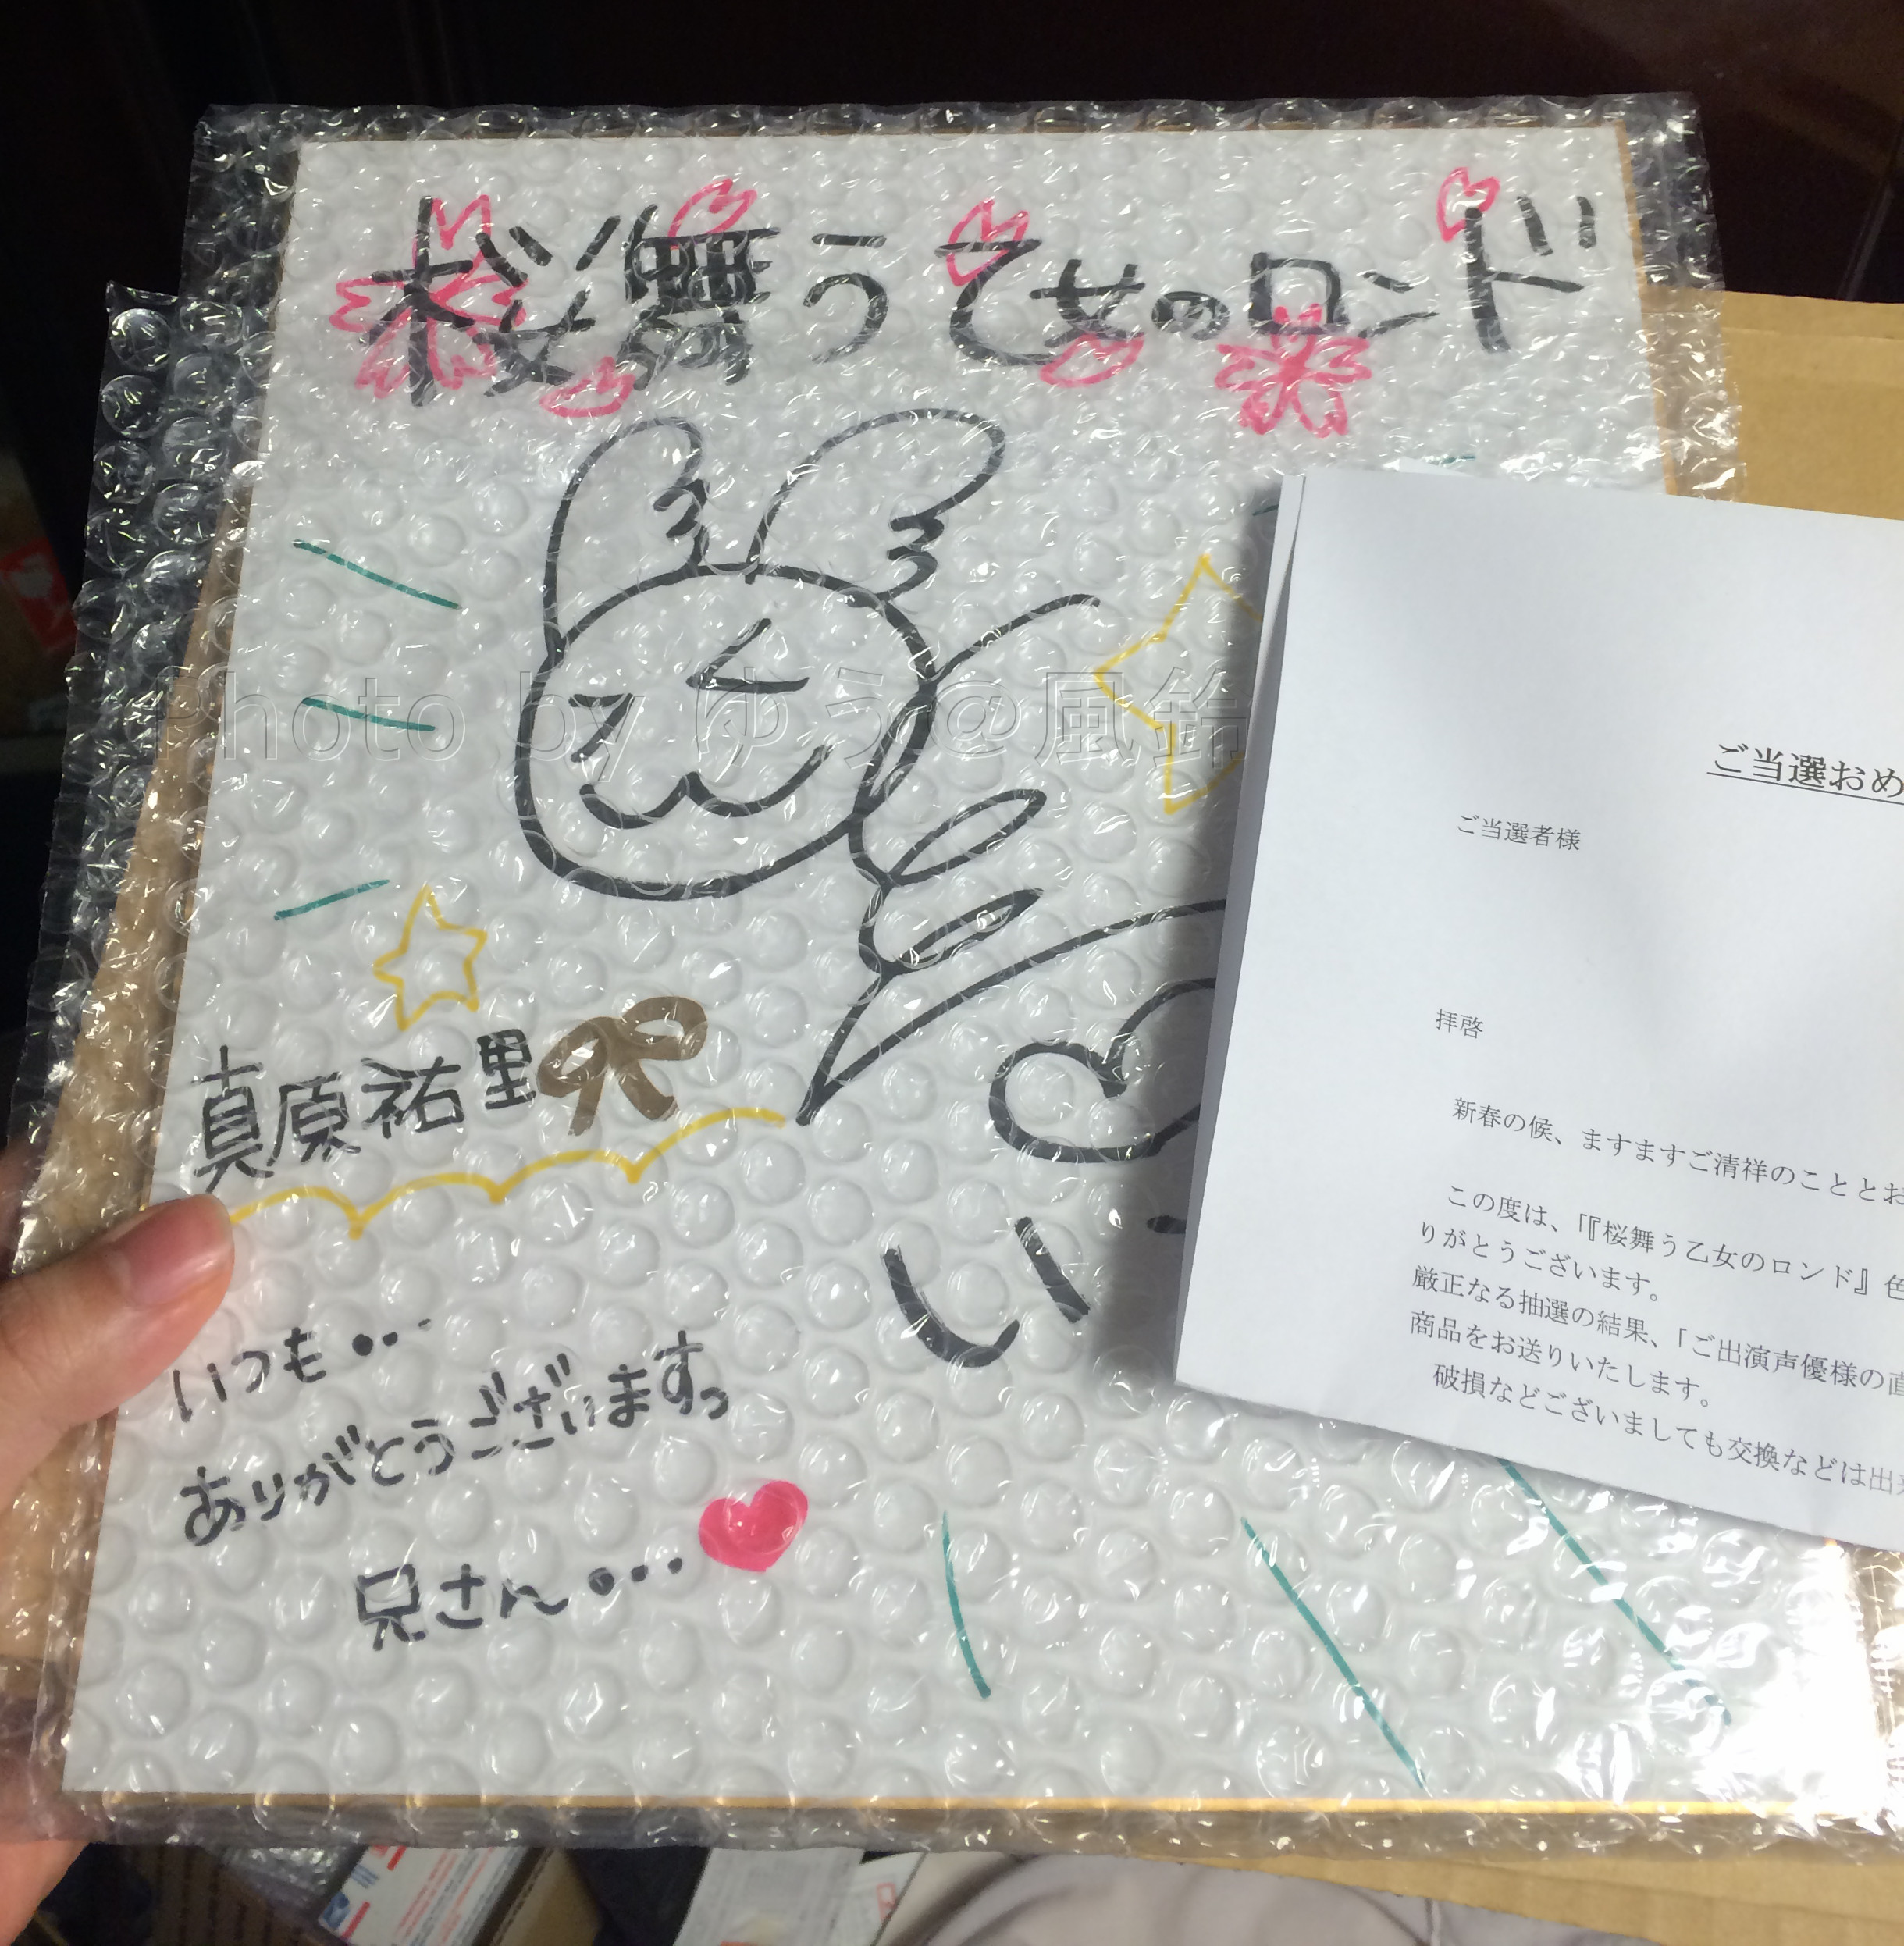 桜舞う乙女のロンド
Photo by ゆう@風鈴
真原祐里
いつも・・・
ありがとうございますっ
兄さん・・・
ご当選おめ
ご当選者様
拝啓
新春の候、ますますご清祥のこととお
この度は、「『桜舞う乙女のロンド』色
りがとうございます。
厳正なる抽選の結果、「ご出演声優様の直
商品をお送りいたします。
破損などございましても交換などは出来